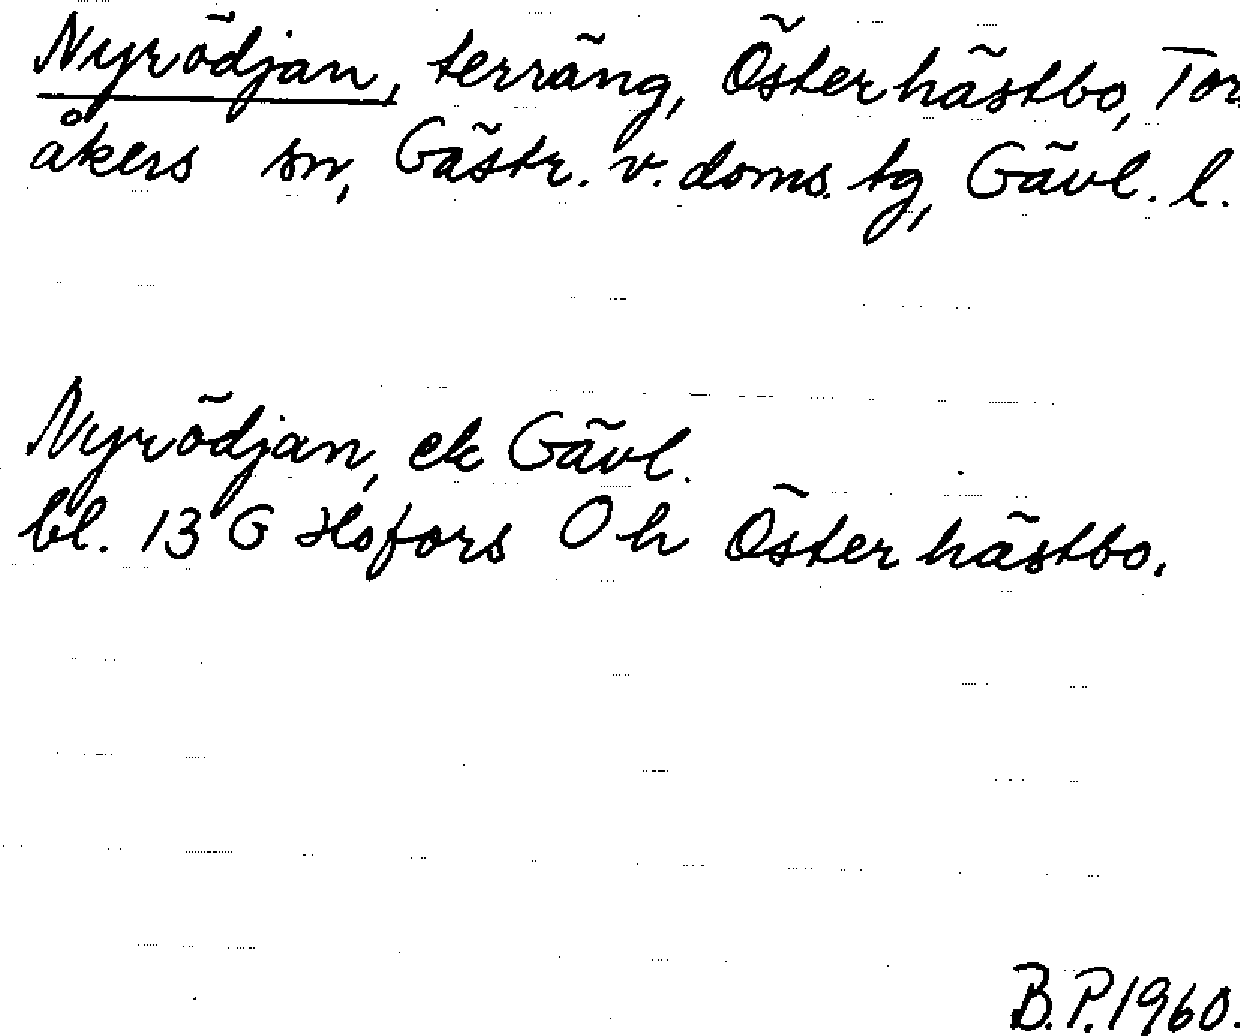 Nyrödjan, terräng, Österhästbo, Tors
åkers sn, Gästr. v. doms. tg, Gävl. l.
Nyrödjan, ek Gävl.
bl. 13 G Hofors 0 h Österhästbo.
B.P. 1960.